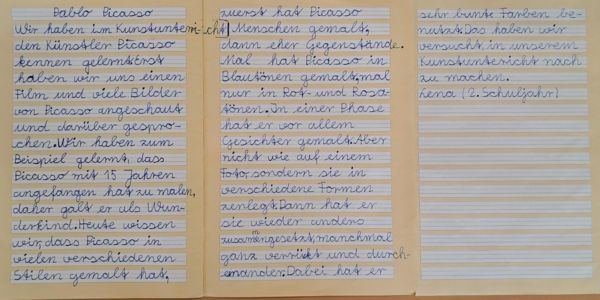 Pablo Picasso
Wir haben im Kunstunterricht
den Künstler Picasso
kennen gelernt.Erst
haben wir uns einen
Film und viele Bilder
von Picasso angeschaut
und darüber gespro-
chen.Wir haben zum
Beispiel gelernt, dass
Picasso mit 15 Jahren
angefangen hat zu malen,
daher galt er als Wun-
derkind.Heute wissen
wir,dass Picasso in
vielen verschiedenen
Stilen gemalt hat,
zuerst hat Picasso
Menschen gemalt,
dann eher Gegenstände.
Mal hat Picasso in
Blautönen gemalt,mal
nur in Rot- und Rosa-
tönen.In einer Phase
hat er vor allem
Gesichter gemalt.Aber
nicht wie auf einem
Foto,sondern sie in
verschiedene Formen
zerlegt.Dann hat er
sie wieder anders
zusammengesetzt,manchmal
ganz verrückt und durch-
einander.Dabei hat er
sehr bunte Farben be-
nutzt.Das haben wir
versucht,in unserem
Kunstunterricht nach
zu machen.
Lena (2.Schuljahr)